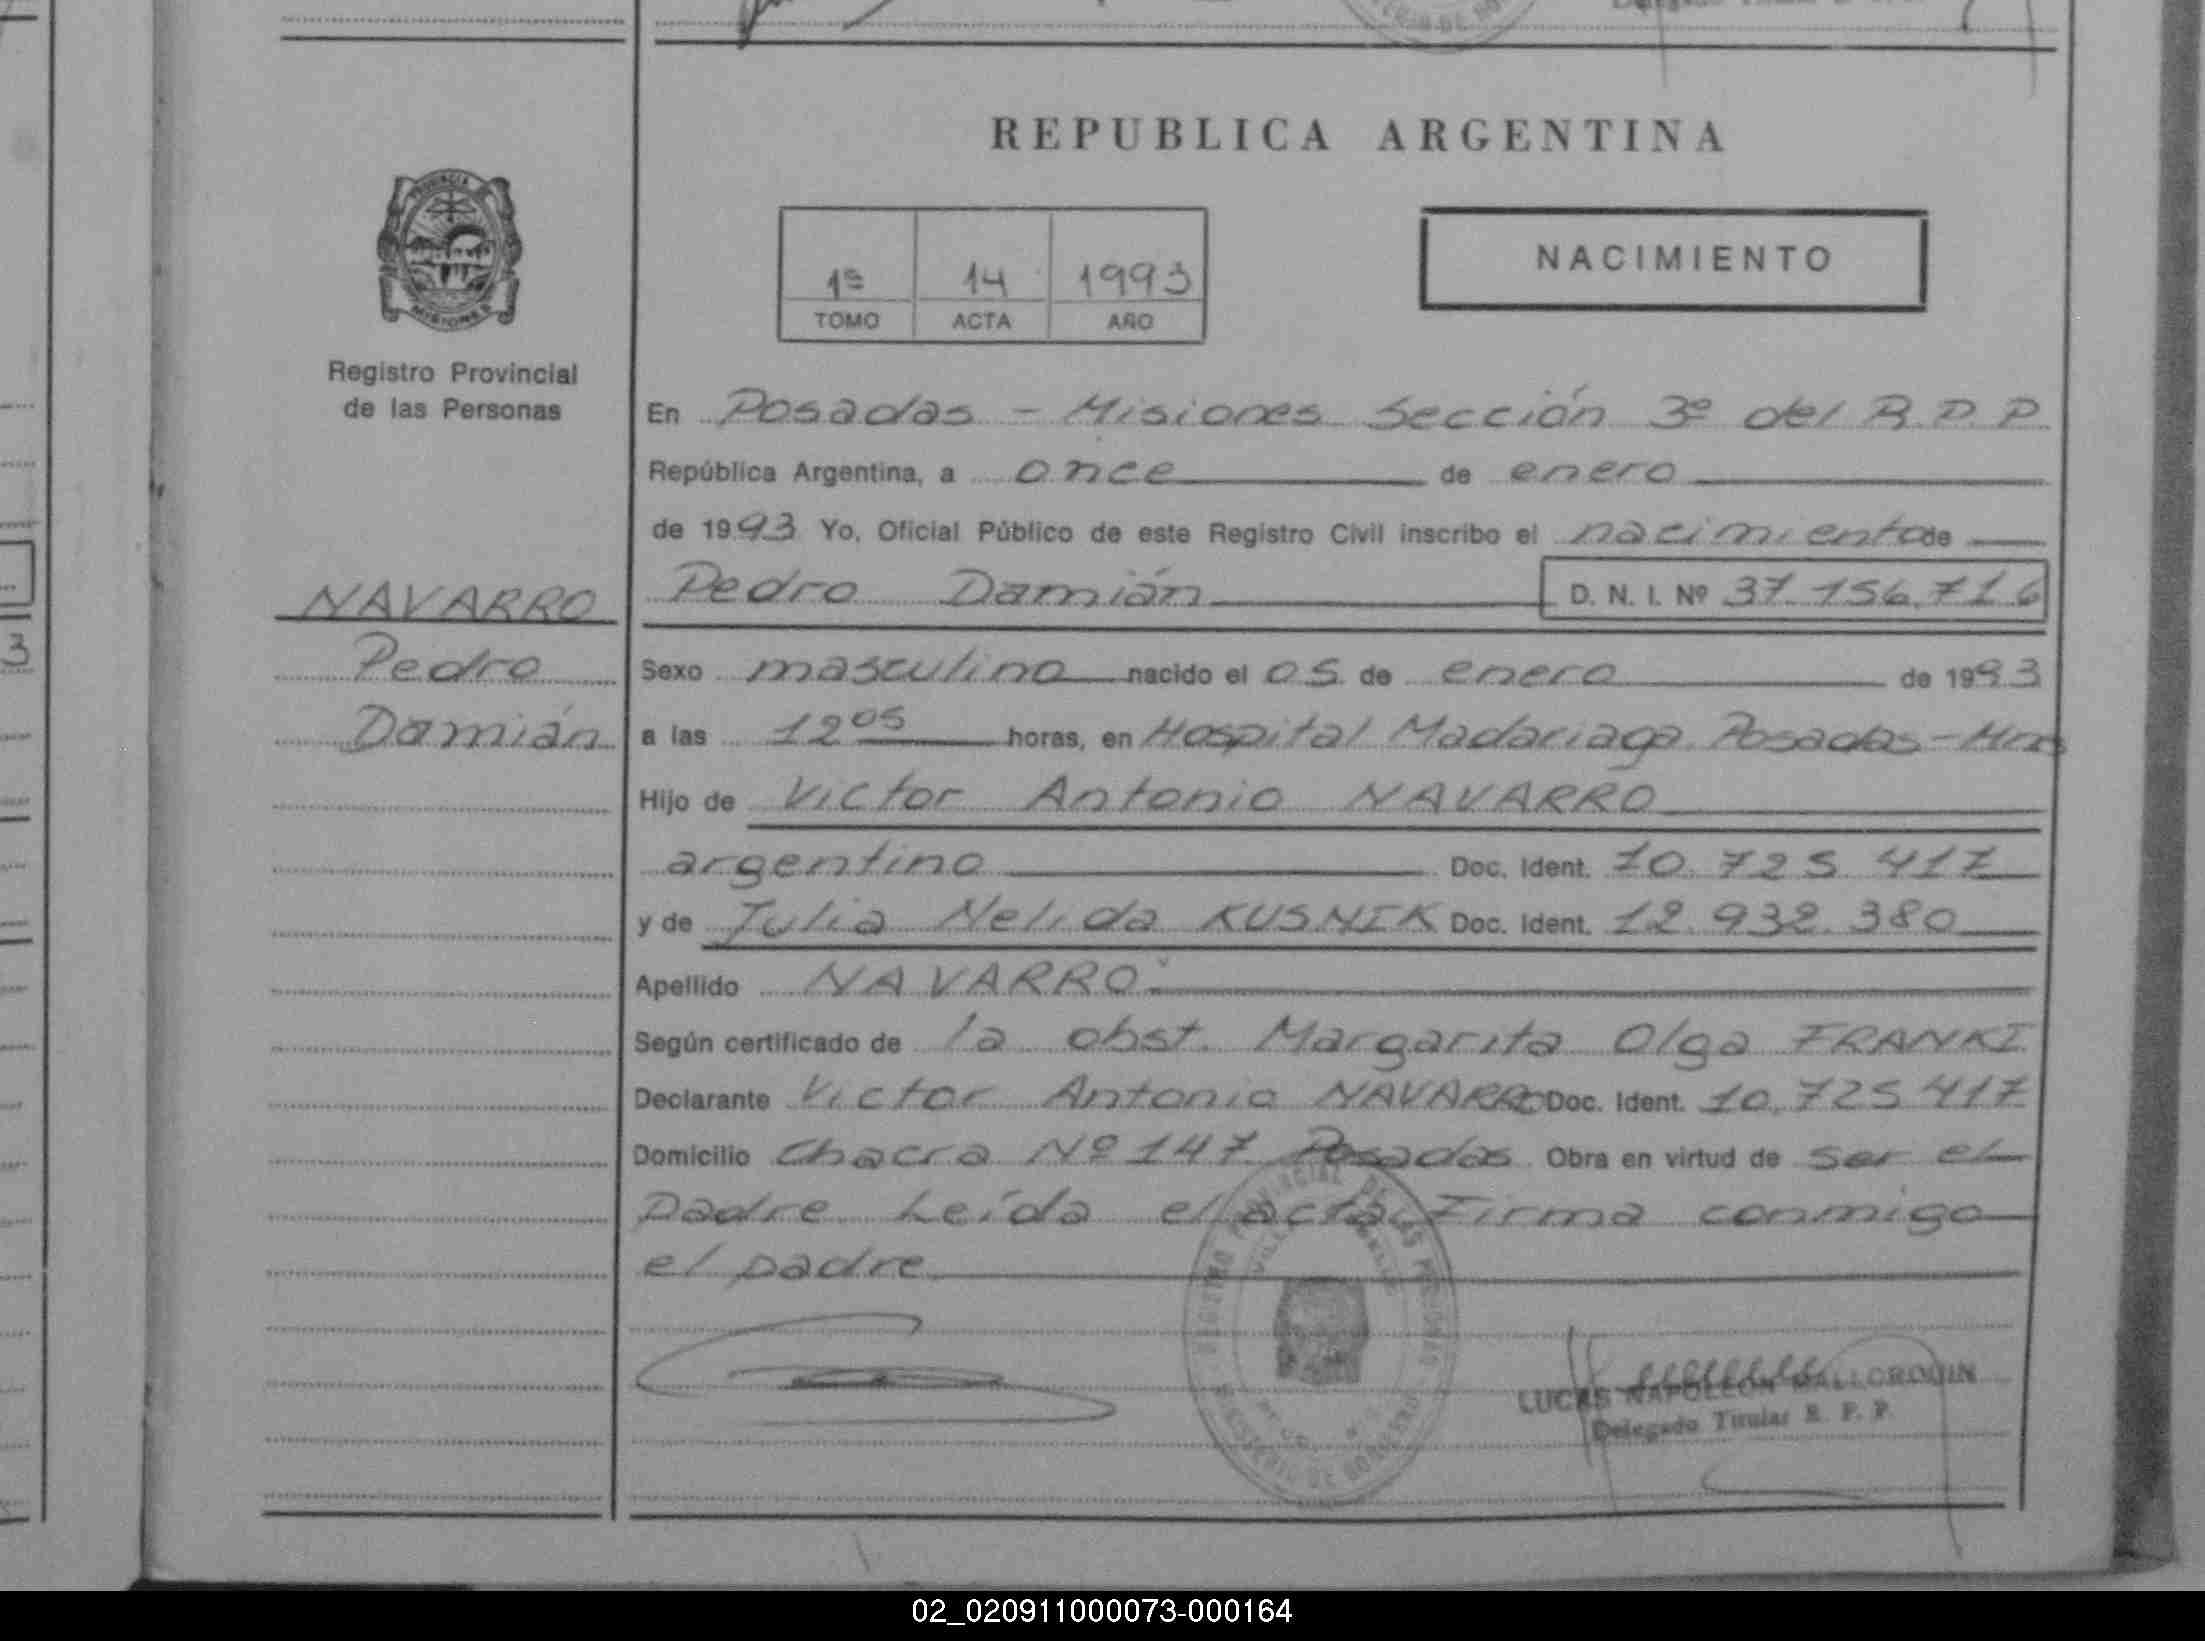 REPUBLICA ARGENTINA
PROVINCIA DE
MISIONES
Registro Provincial
de las Personas
1º 14 1993
TOMO ACTA AÑO
NACIMIENTO
En Posadas - Misiones Sección 3º del R.P.P.
República Argentina, a once de enero
de 1993 Yo, Oficial Público de este Registro Civil inscribo el nacimiento de
NAVARRO
Pedro
Damián
Pedro Damián D. N. I. Nº 37.156.716
Sexo masculino nacido el 05 de enero de 1993
a las 12 05 horas, en Hospital Madariaga Posadas - Mnes
Hijo de Victor Antonio NAVARRO
argentino Doc. Ident. 10.725.417
y de Julia Nelida KUSNIK Doc. Ident. 12.932.380
Apellido NAVARRO
Según certificado de la obst. Margarita Olga FRANKI
Declarante Victor Antonio NAVARRO Doc. Ident. 10.725.417
Domicilio Chacra Nº 147 Posadas Obra en virtud de ser el
padre Leída el acta, Firma conmigo
el padre
REGISTRO PROVINCIAL DE LAS PERSONAS
MINISTERIO DE GOBIERNO
LUCAS NAPOLEON MALLORQUIN
Delegado Titular R. P. P.
3
02_020911000073-000164